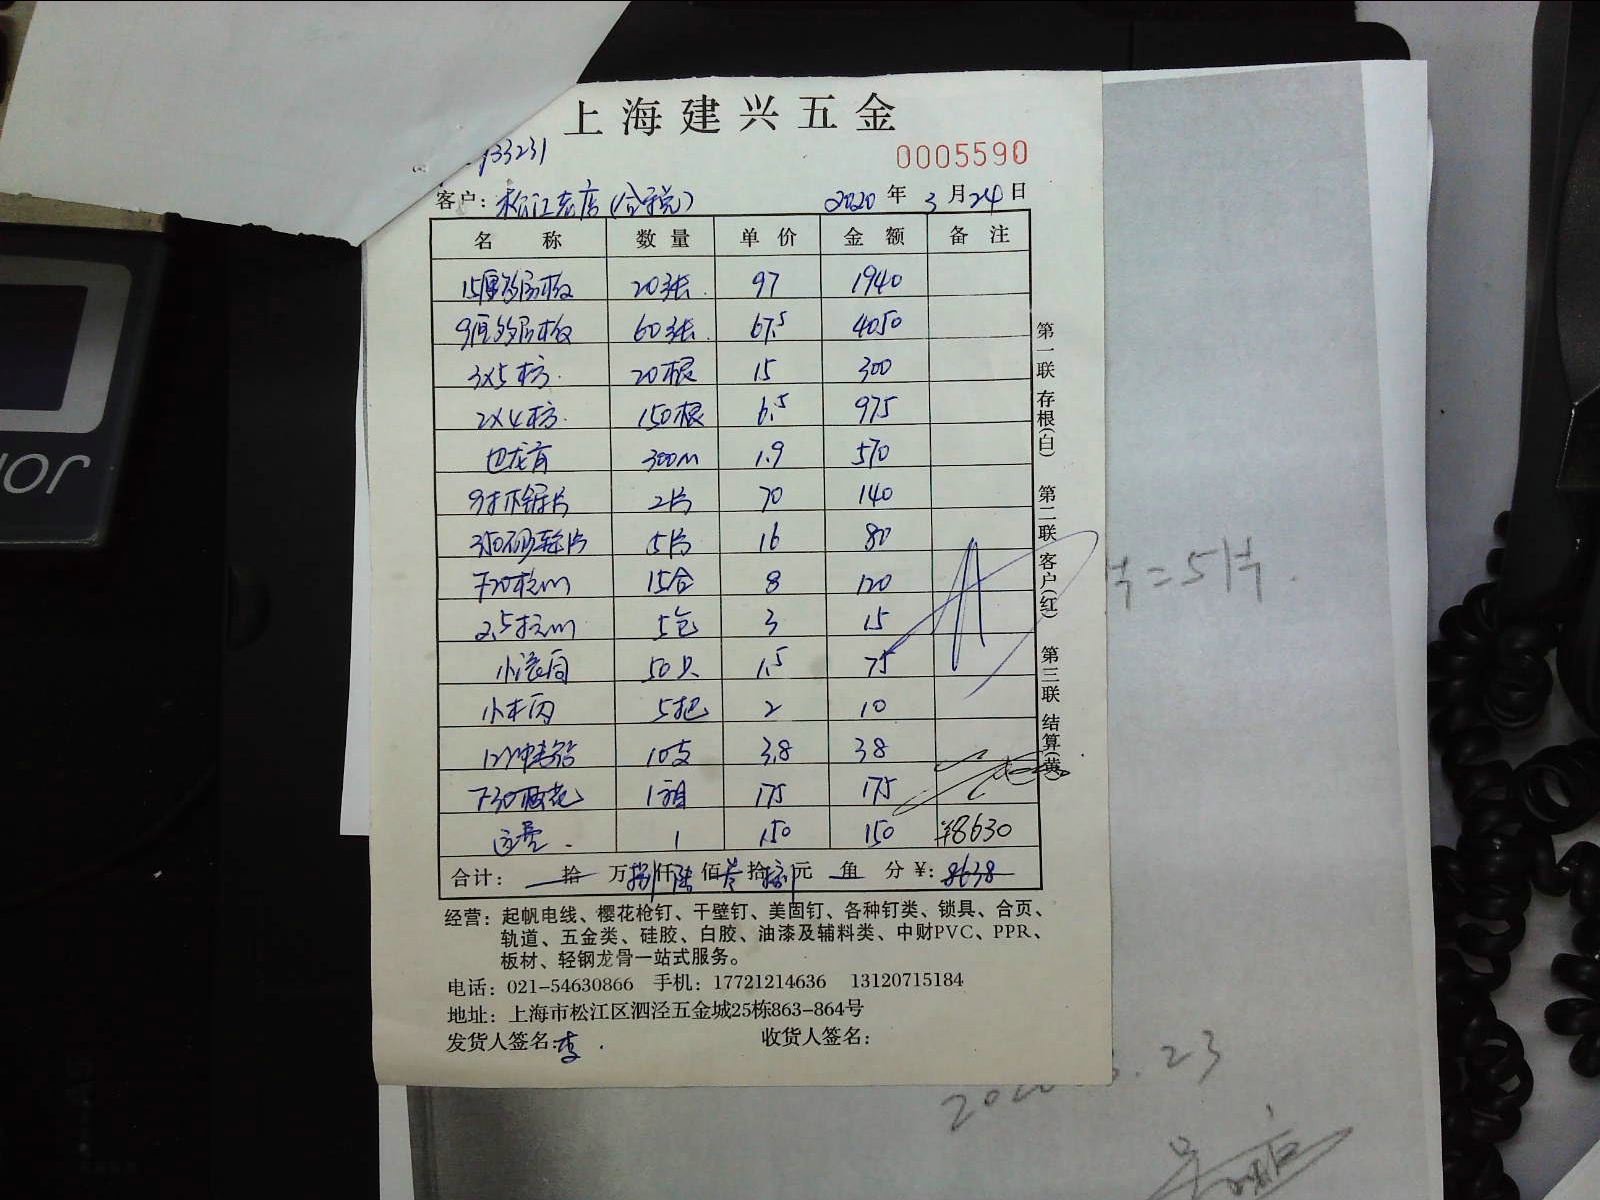 上海建兴五金
33231
0005590
客户：松江老店（含税） 2020年3月24日
名称 数量 单价 金额 备注
15厘多层板 20张. 97 1940
9厘多层板 60张. 67.5 4050
3×5木方. 20根 15 300
2×4木方. 150根 6.5 975
300M 1.9 570
2片 70 140
350砂轮片 5片 16 80
15合 8 120
5包 3 15
50只 1.5 75
5把 2 10
10支 3.8 38
1箱 175 175
运费. 1 150 150 ¥8630
合计： 拾 万捌仟陆佰叁拾捌元 角 分¥：8638
第一联 存根(白) 第二联 客户(红) 第三联 结算(黄)
经营：起帆电线、樱花枪钉、干壁钉、美固钉、各种钉类、锁具、合页、
轨道、五金类、硅胶、白胶、油漆及辅料类、中财PVC、PPR、
板材、轻钢龙骨一站式服务。
电话：021-54630866 手机：17721214636 13120715184
地址：上海市松江区泗泾五金城25栋863-864号
发货人签名:李. 收货人签名:
片=5片.
.23